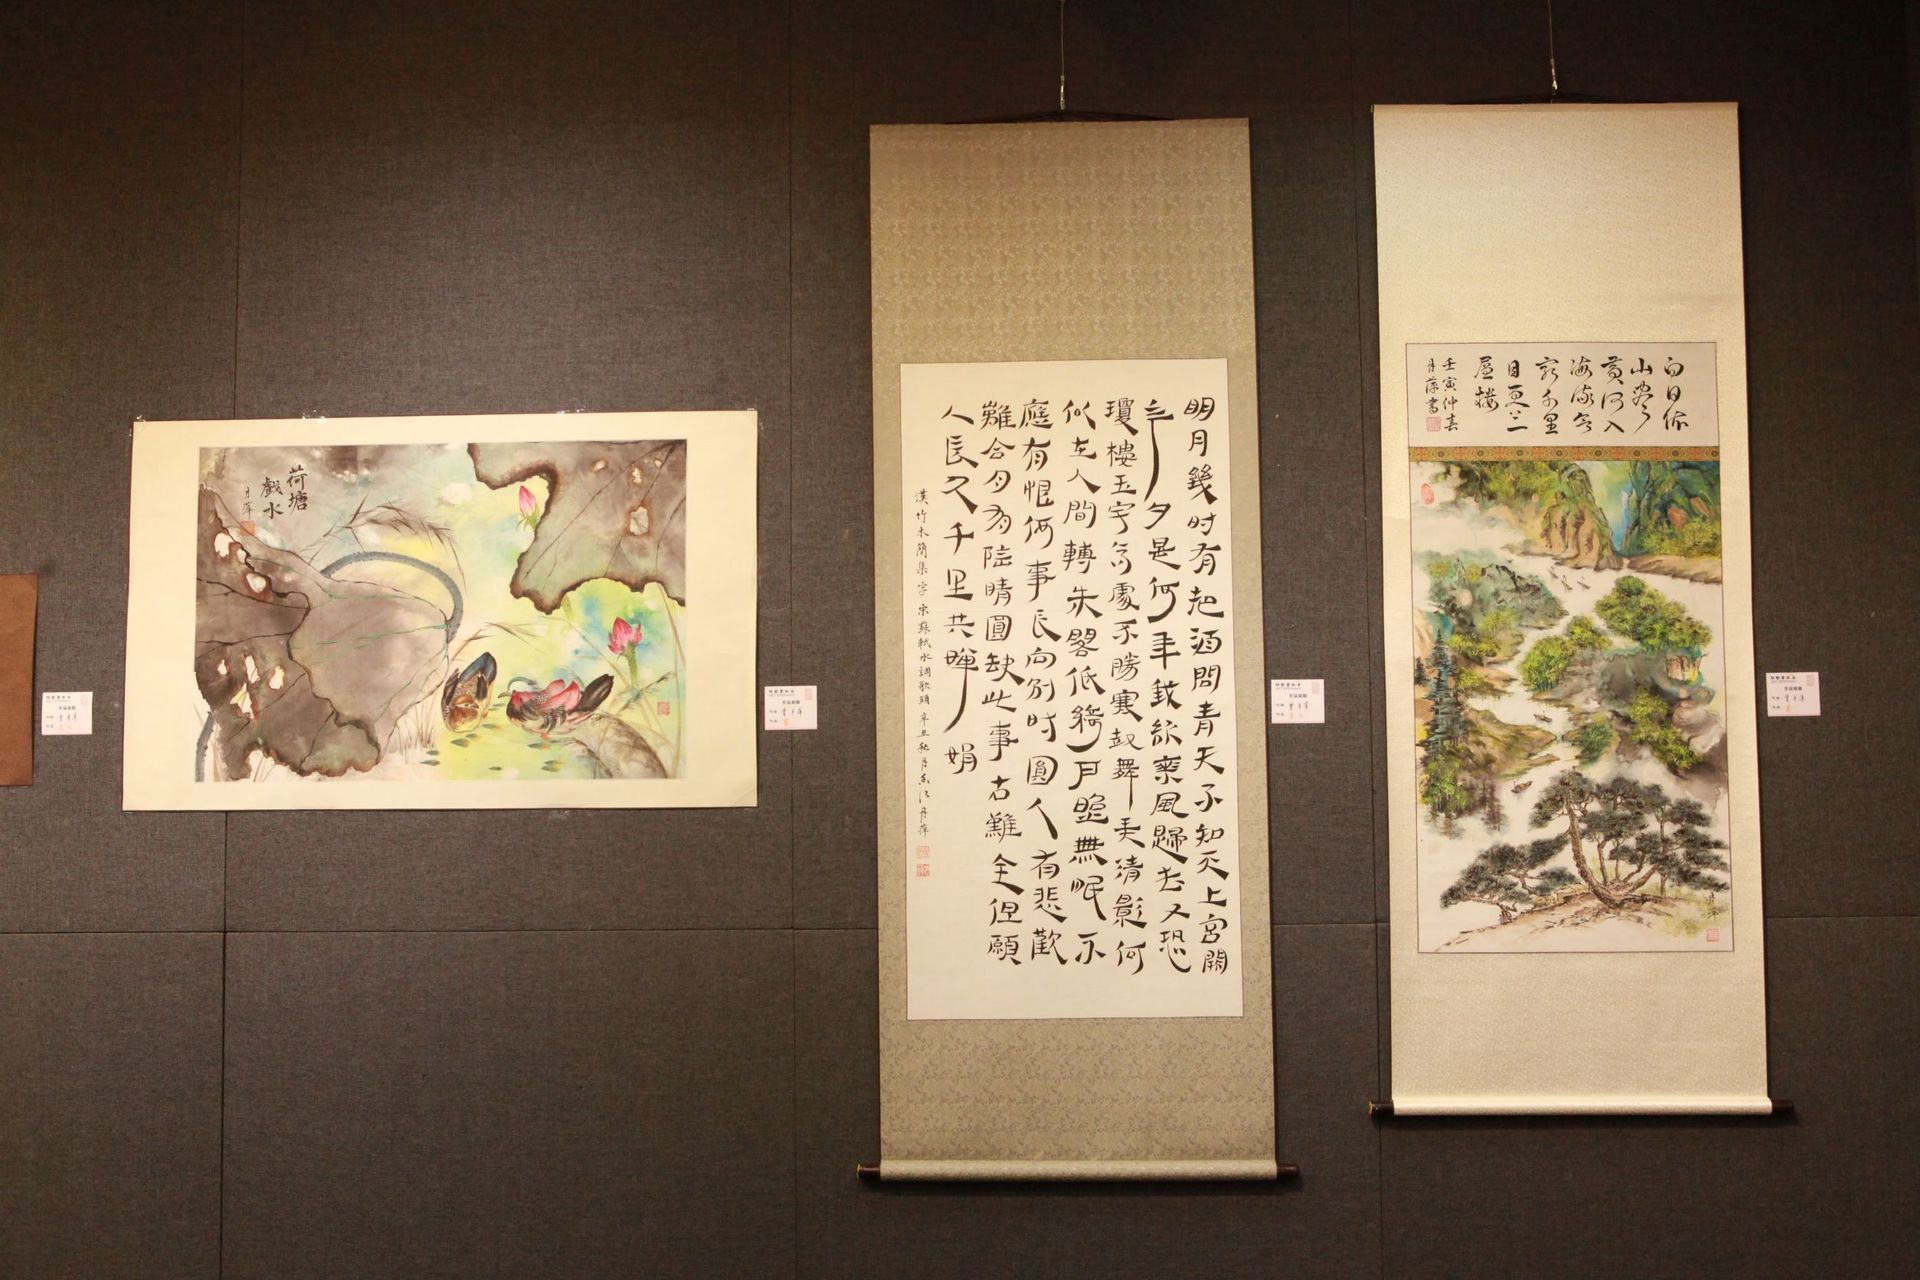 荷塘
戲水
月萍
明月幾时有把酒問青天不知天上宮闕
今夕是何年我欲乘風歸去又恐
瓊樓玉宇高處不勝寒起舞弄清影何
似在人間轉朱閣低綺戶照無眠不
應有恨何事長向別时圓人有悲歡
離合月有陰晴圓缺此事古難全但願
人長久千里共嬋娟
漢竹木簡集字宋蘇軾水調歌頭辛丑秋月香江月萍
白日依
山盡
黃河入
海流欲
窮千里
目更上一
層樓
壬寅仲春
月萍書
月萍